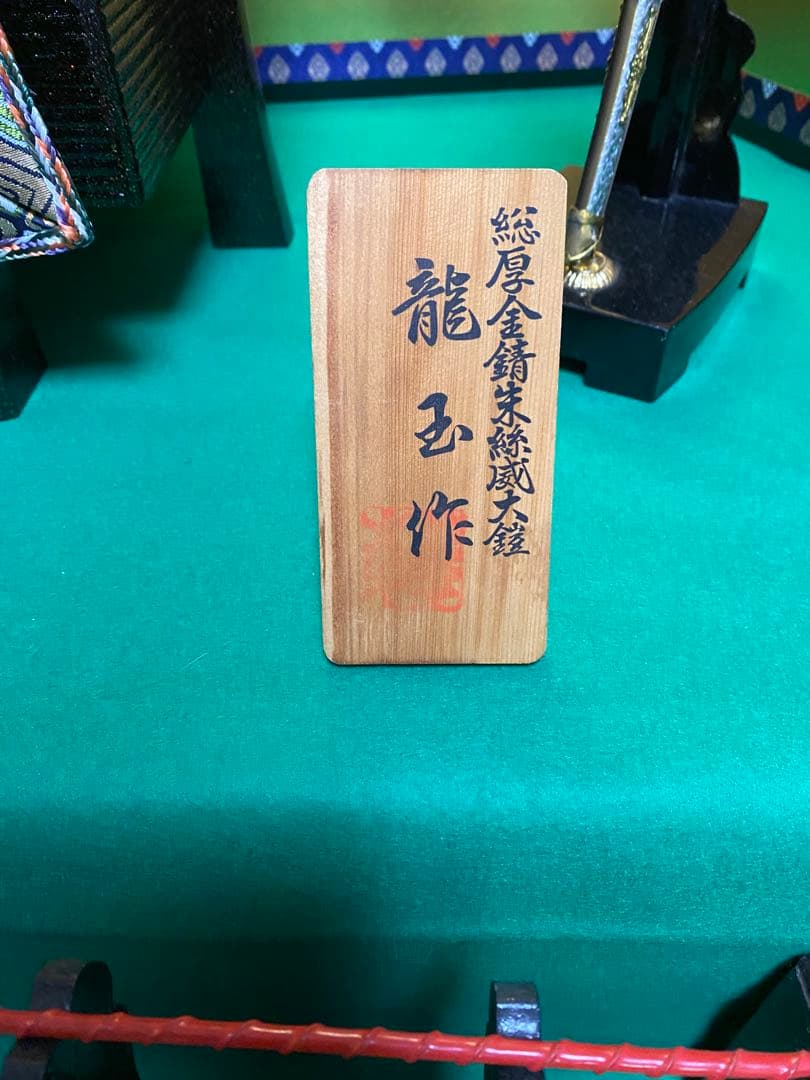 総厚金錆朱絲威大鎧
龍玉作